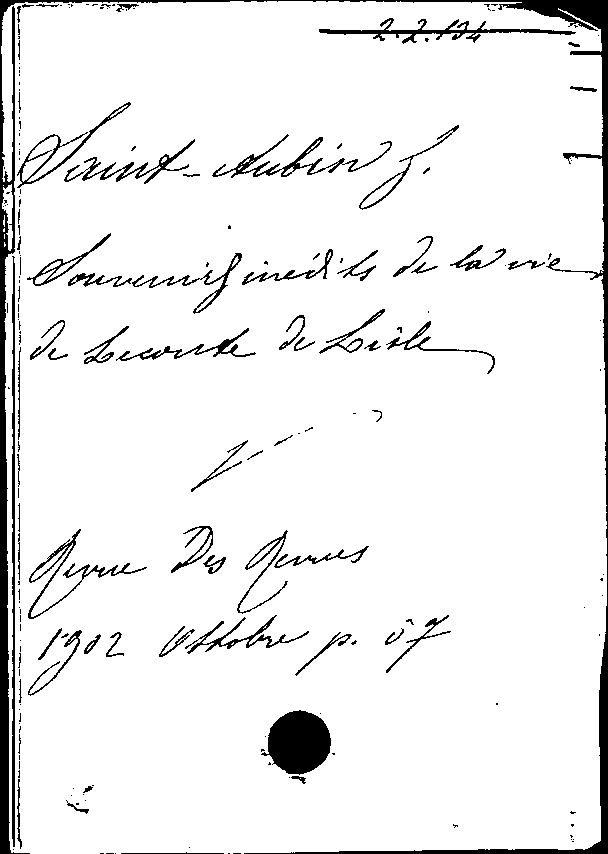 2.2.134
Saint-Aubin J.
Souvenirs inédits de la vie
de Leconte de Lisle
Revue Des Revues
1902 Ottobre p. 57